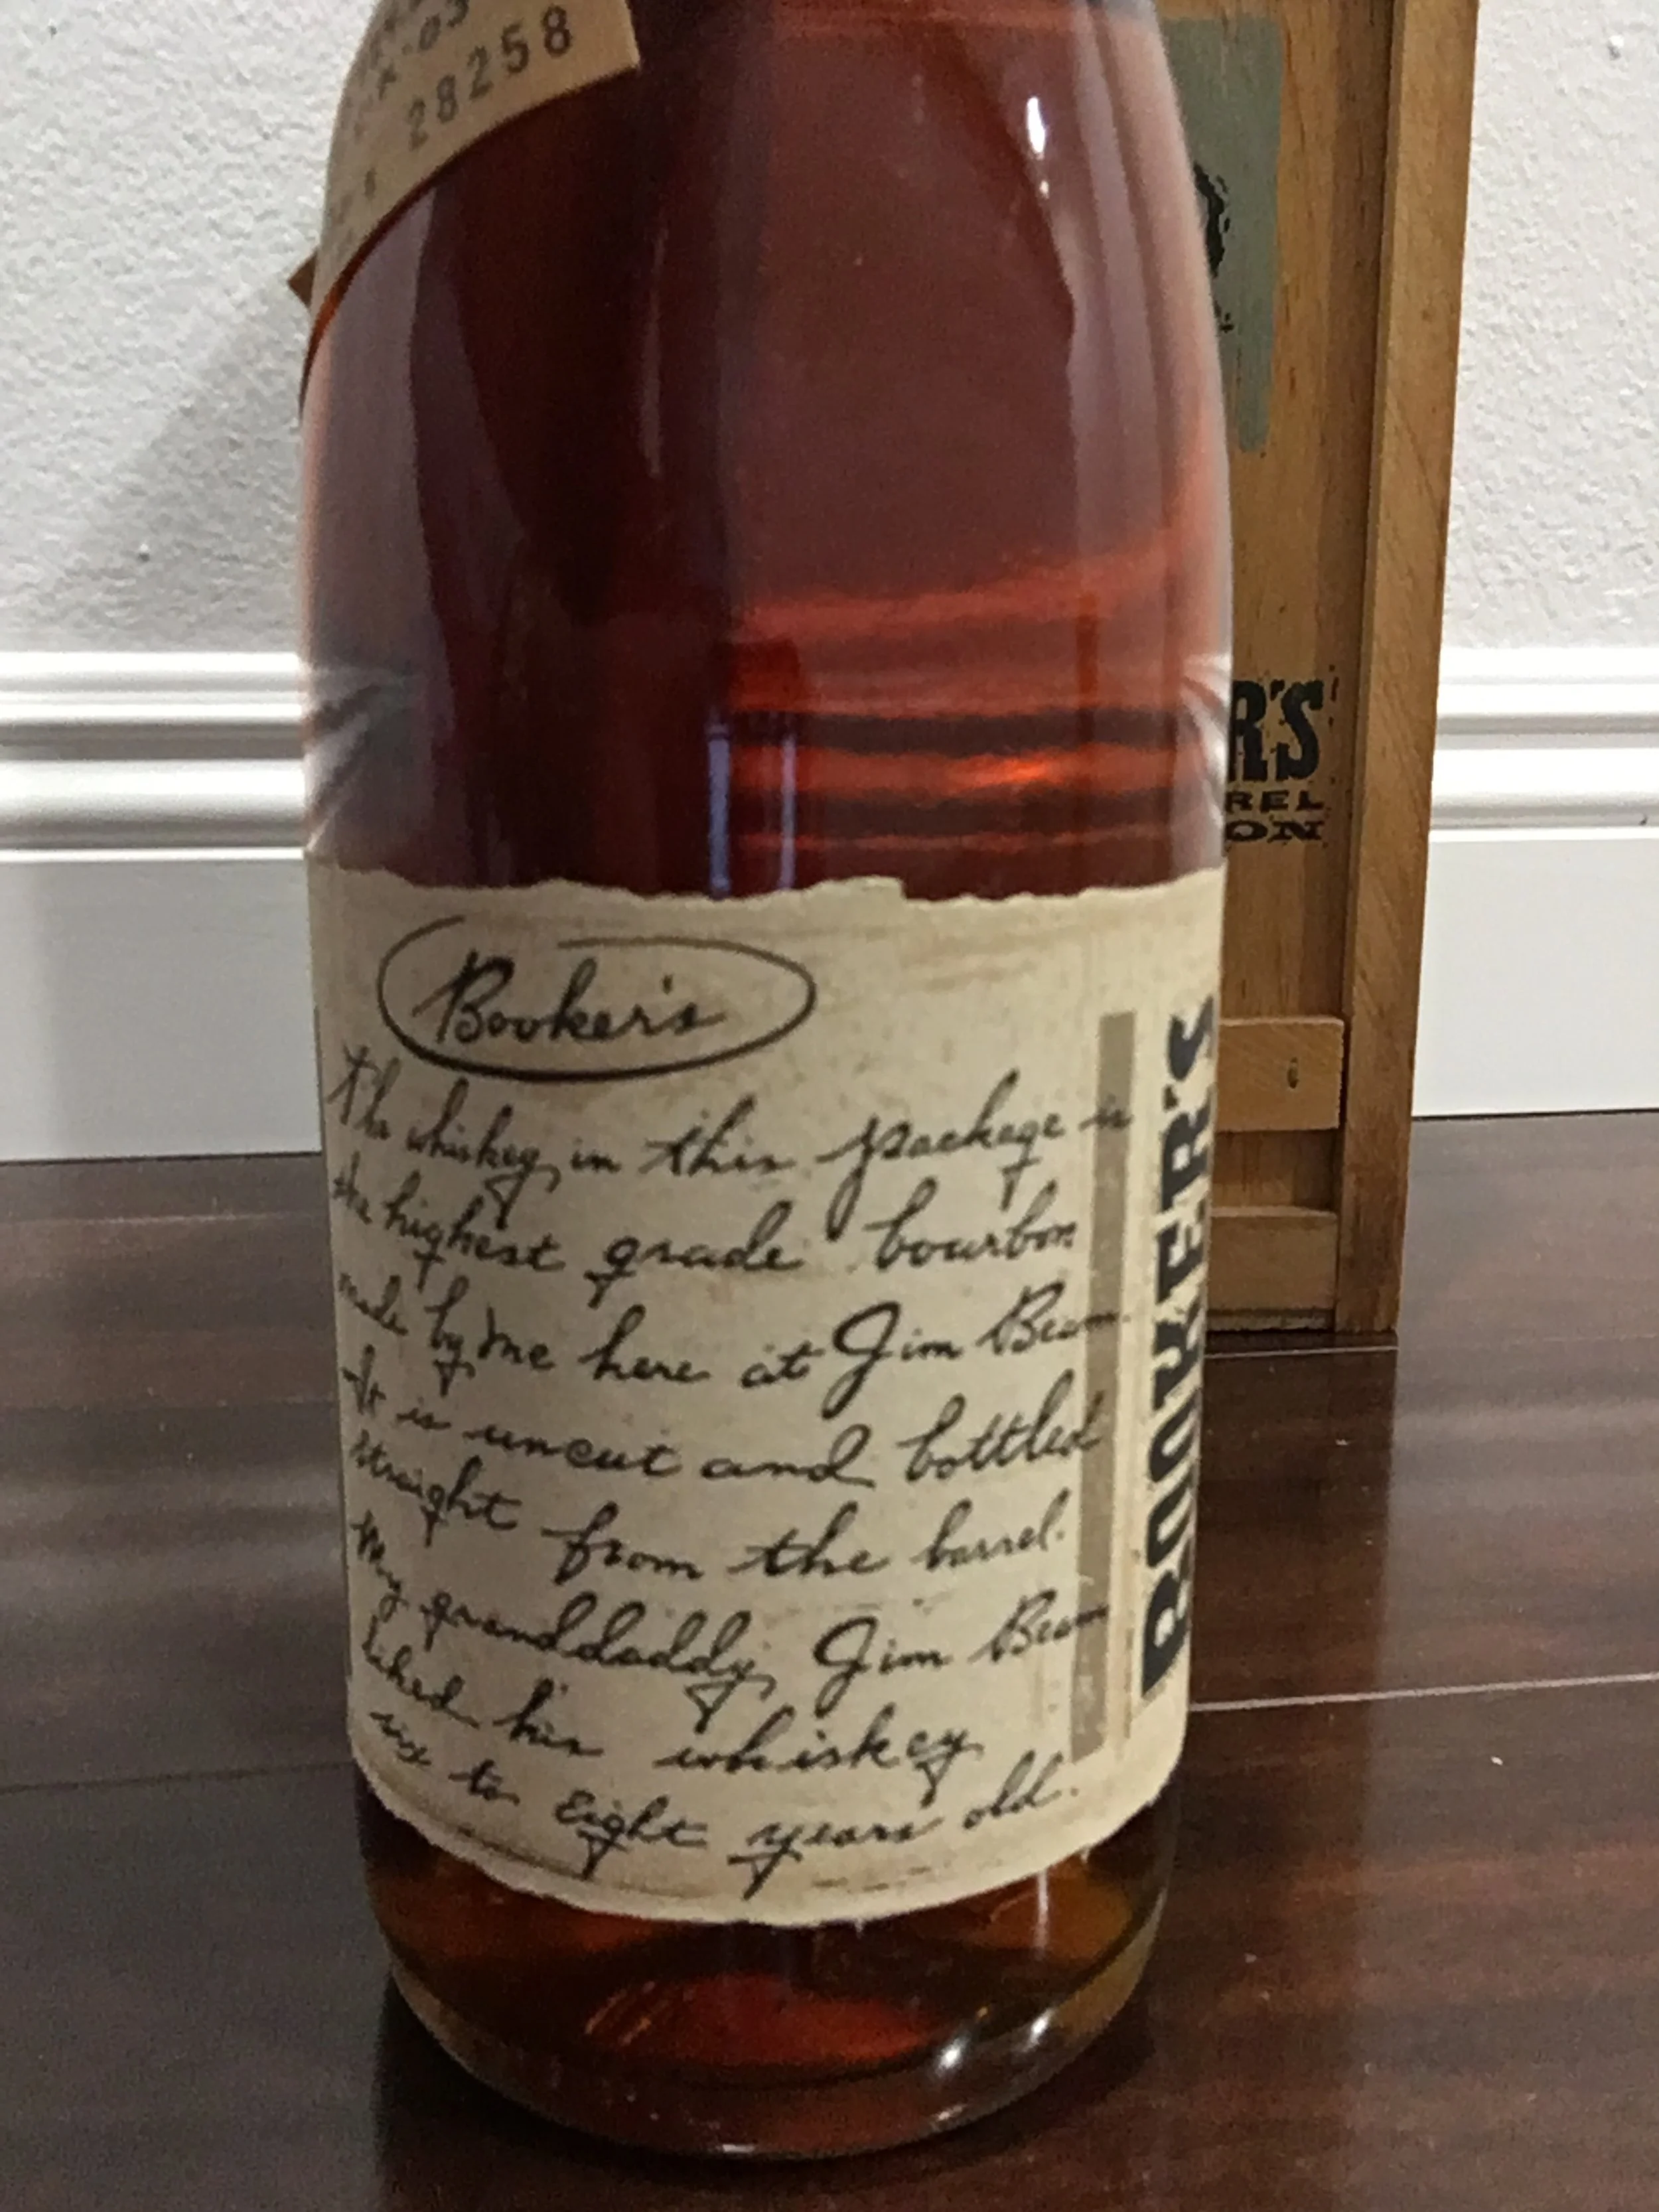 28258
Booker's
The whiskey in this package is
the highest grade bourbon
made by me here at Jim Beam.
It is uncut and bottled
straight from the barrel.
My granddaddy, Jim Beam
liked his whiskey
six to Eight years old.
BOOKER'S
R'S
REL
ON